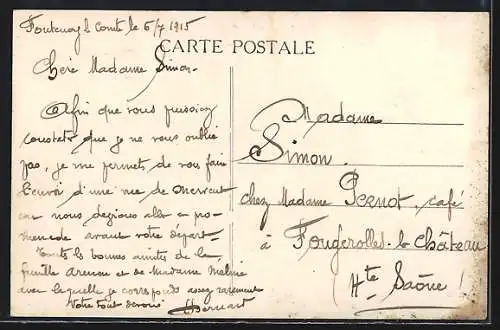 Fontenay le Comte le 6/7 1915
CARTE POSTALE
Chère Madame Simon.
Afin que vous puissiez
constater que je ne vous oublie
pas, je me permets de vous faire
l'envoi d'une vue de Mervent
où nous devions aller en pro-
menade avant votre départ.
Toutes les bonnes amitiés de la
famille et de Madame
avec laquelle je corresponds assez rarement
Votre tout dévoué
Madame
Simon.
chez Madame Pernot, café
à Fougerolles-le-Château
Hte Saône!